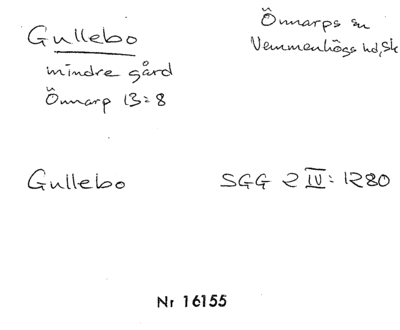 Gullebo
mindre gård
Önnarp 13:8
Önnarps sn
Vemmenhögs hd, Sk
Gullebo
SGG 2 IV: 1280
Nr 16155